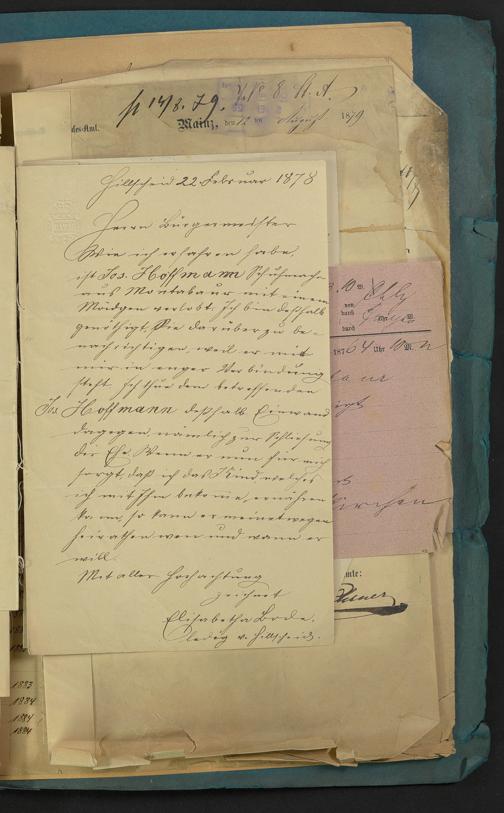 p 14/8. 79.
Mainz, den 12 ten August 1879
Hillscheid 22 Februar 1878
Herrn Bürgermeister
Wie ich erfahren habe,
ist Jos. Hoffmann Schuhmacher
aus Montabaur mit einem
Mädgen verlobt. Ich bin deßhalb
genöthigt, Sie darüber zu be-
nachrichtigen, weil er mit
mir in enger Verbindung
steht. Ich thue dem betreffenden
Jos. Hoffmann deßhalb Einwand
dagegen, nämlich zur Schließung
der Ehe. Wenn er nun für mich
sorgt, daß ich das Kind welches
ich mit Ihm bekomme, ernähren
kann, so kann er meinetwegen
heirathen wen und wann er
will.
Mit aller Hochachtung
zeichnet
Elisabetha Bode.
ledig v. Hillscheid.
von
durch
durch
187
Uhr
1883
1884
1884
1884